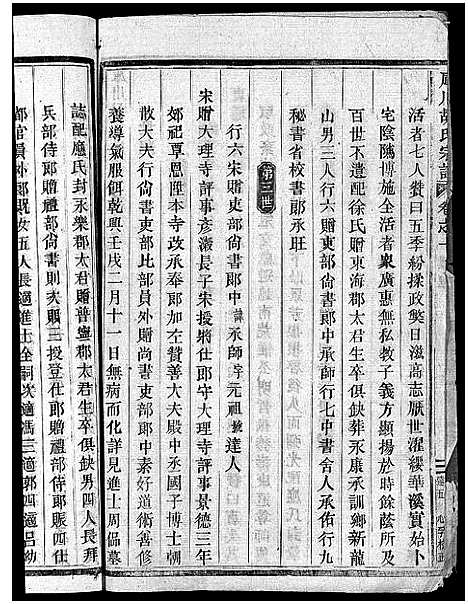 胡氏宗譜 卷之一
活者七人贊曰五季紛揉政獘日滋高志厭世濯纓華溪實始卜
宅陰隲博施全活者衆廣惠無私教子義方顯揚於時餘蔭所及
百世不遺配徐氏贈東海郡太君生卒俱缺葬永康承訓鄉新龍
山男三人行六贈吏部尚書郞中行七中書舍人承佑行九
秘書省校書郞永旺
第三世
行六宋贈吏部尚書郞中諱承師字元祖號達人
宋贈大理寺評事彥滋長子宋授將仕郞守大理寺評事景德三年
郊祀覃恩陞本寺改承奉郞加左贊善大夫殿中丞國子博士朝
散大夫行尚書吏部比部員外贈尚書吏部郞中素好道術善修
養導氣服餌乾興壬戌二月十一日無病而化詳見進士周偘墓
誌配應氏封永樂郡太君贈普寧郡太君生卒俱缺男四人長拜
兵部侍郞贈禮部尚書則次賜三授登仕郞贈禮部侍郞賑四仕
都官員外郞
女五人長適進士金嗣次適馮三適郭四適呂幼